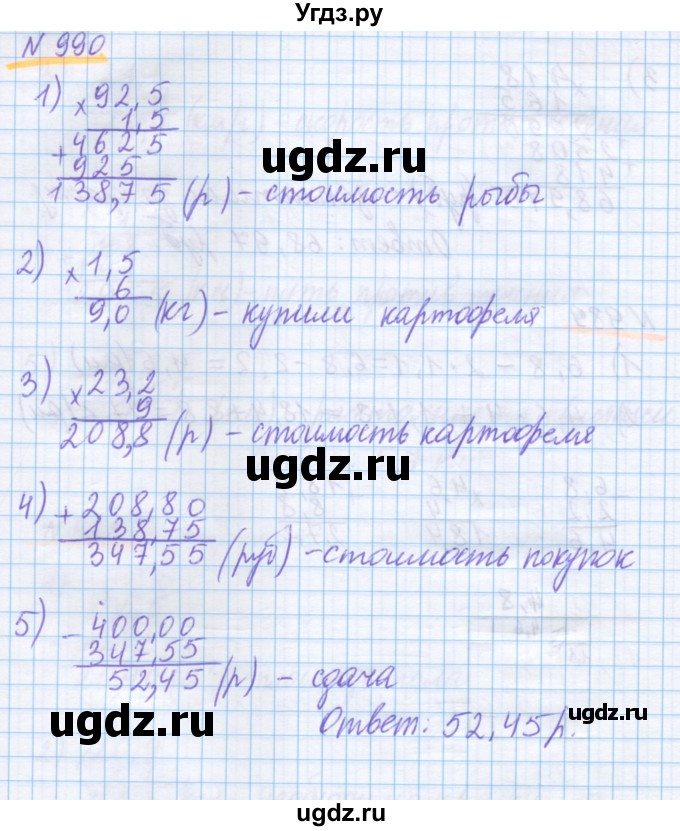 Угдз.ру
N 990
1) × 92,5
1,5
+ 4625
925
138,75 (р) – стоимость рыбы
ugdz.ru
ugdz.ru
2) × 1,5
6
9,0 (кг) – купили картофеля
3) × 23,2
9
208,8 (р) – стоимость картофеля
ugdz.ru
ugdz.ru
4) + 208,80
138,75
347,55 (руб) – стоимость покупок
5) – 400,00
347,55
52,45 (р) – сдача
Ответ: 52,45 р.
ugdz.ru
ugdz.ru
ugdz.ru